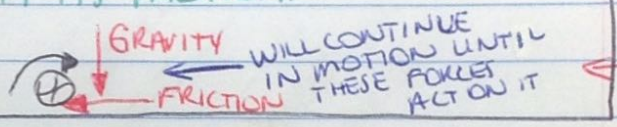 GRAVITY
FRICTION
WILL CONTINUE
IN MOTION UNTIL
THESE FORCES
ACT ON IT